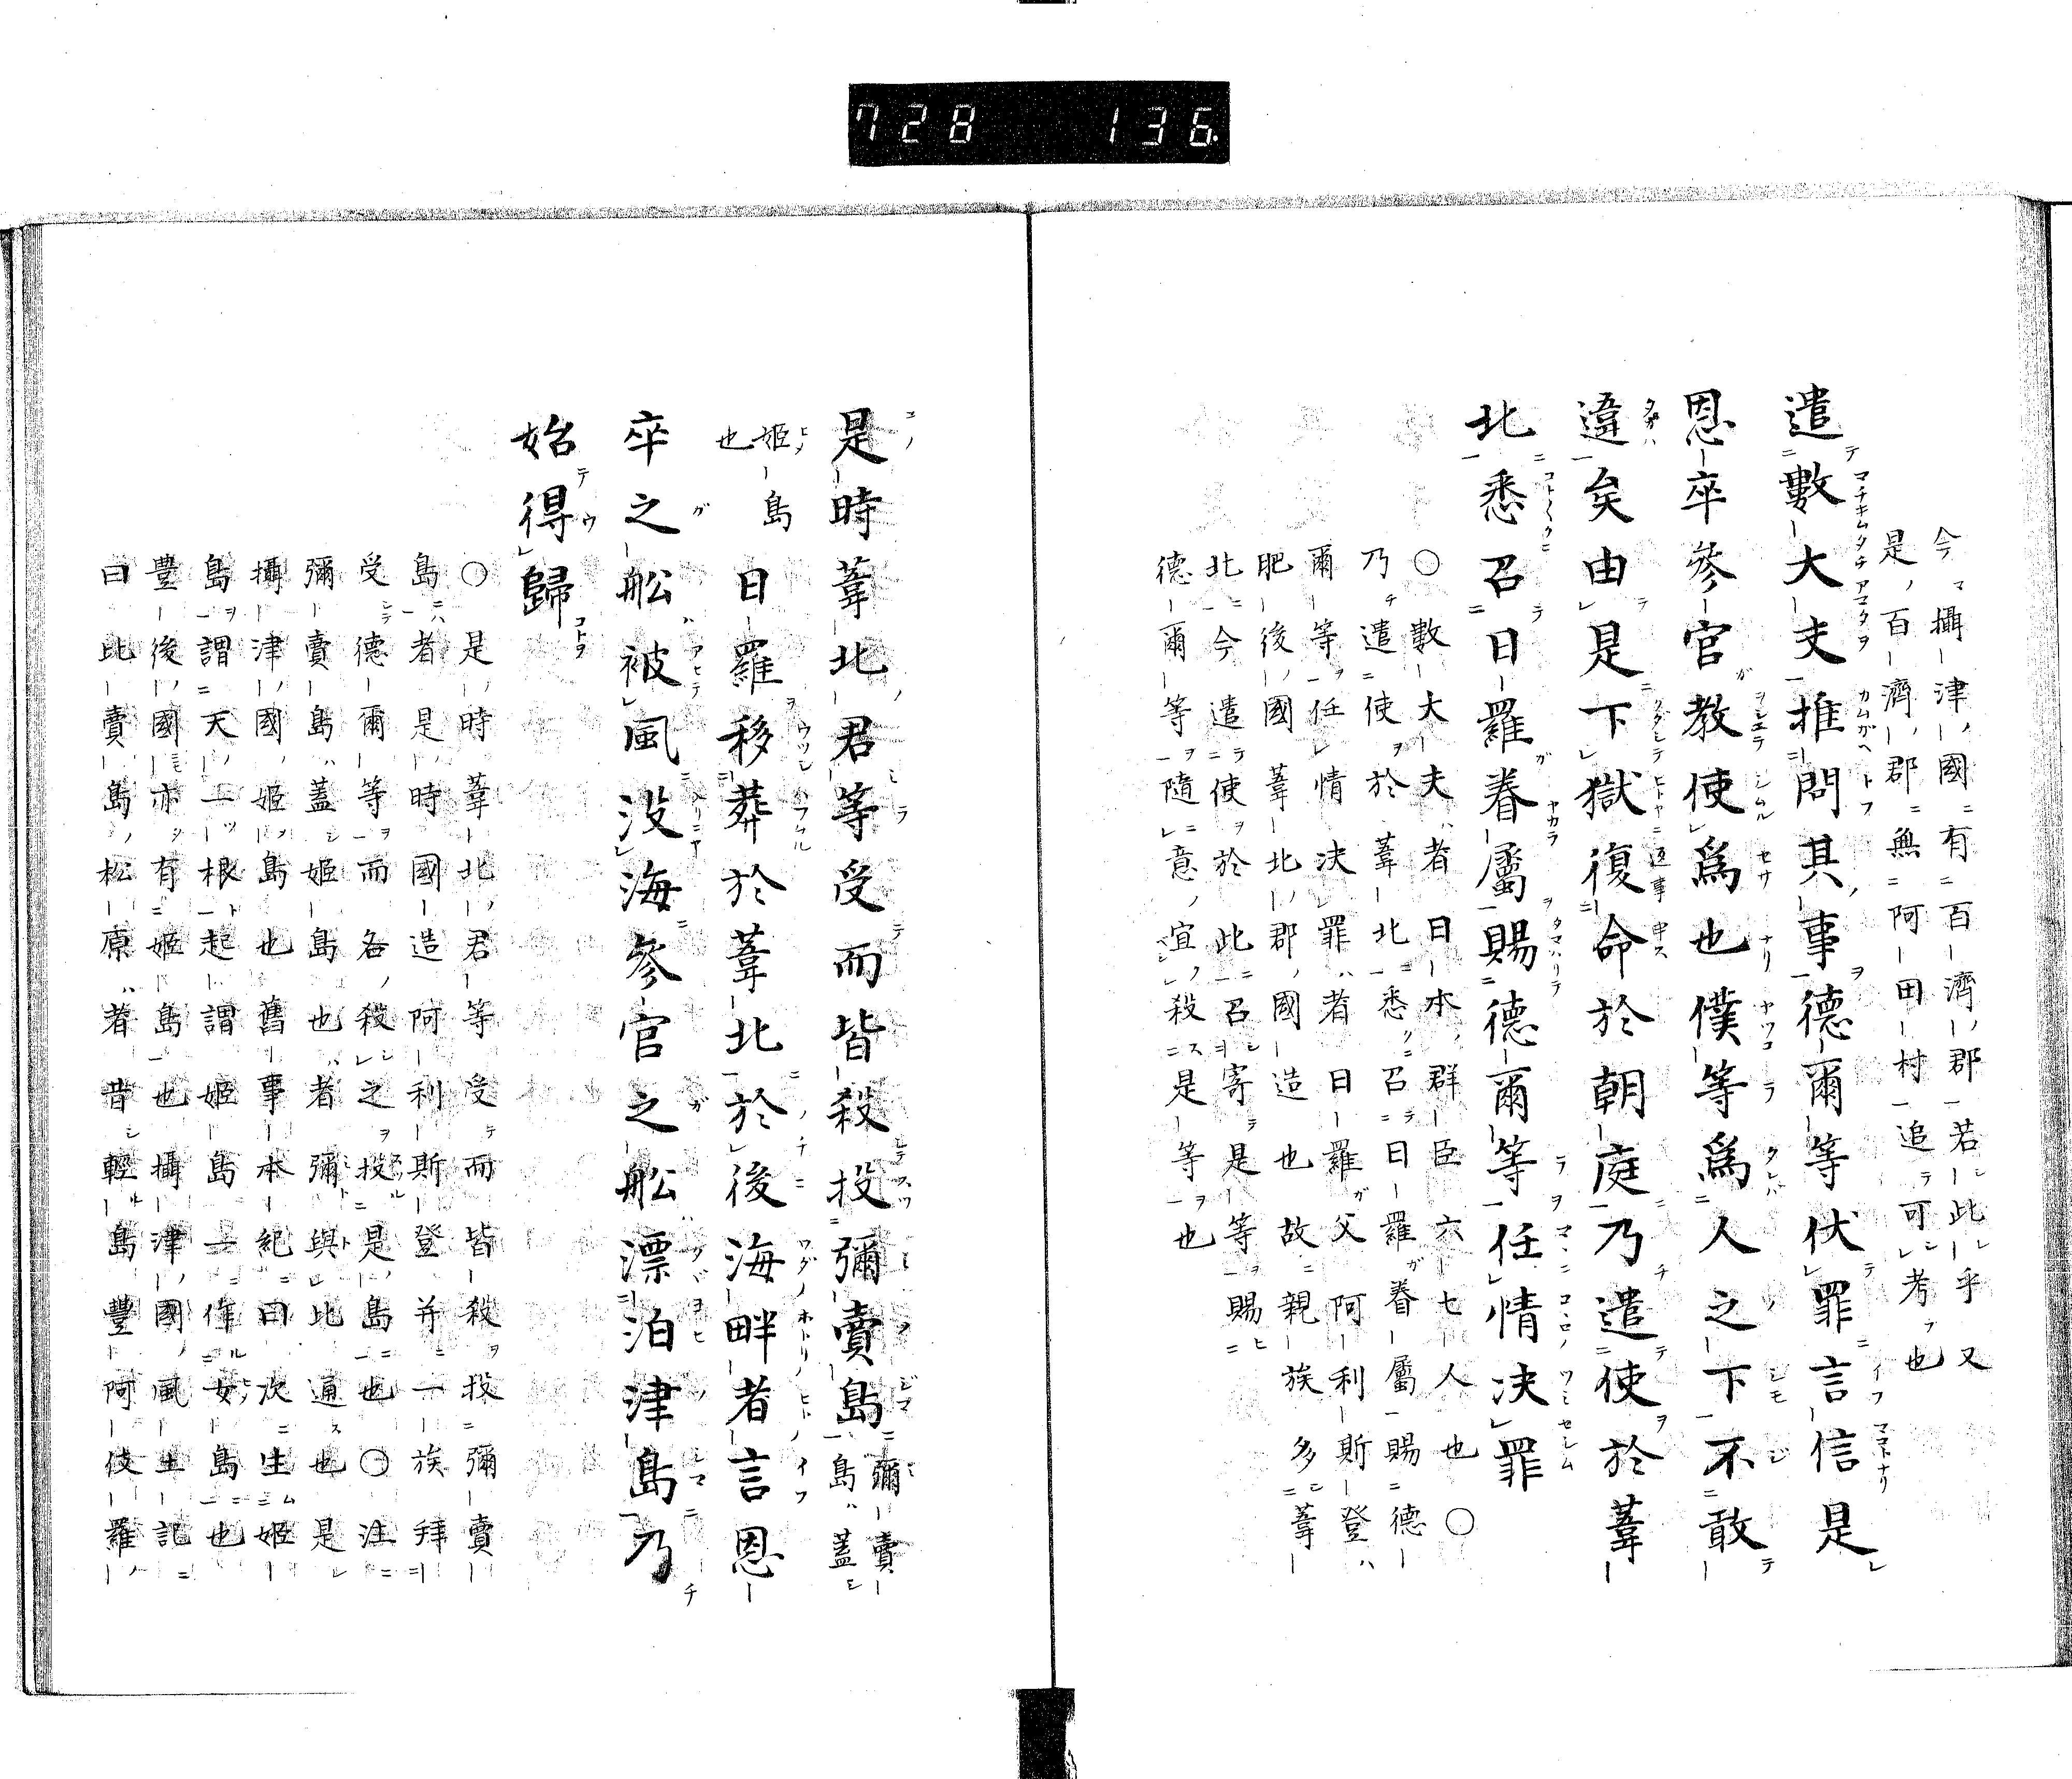 728 136
今攝津國有百濟郡若此乎又
是百濟郡無阿田村追可考也
遣數大夫推問其事德爾等伏罪言信是
恩卒參官教使爲也僕等爲人之下不敢
違矣由是下獄復命於朝庭乃遣使於葦
北悉召日羅眷屬賜德爾等任情决罪
○數大夫者日本群臣六七人也○
乃遣使於葦北悉召日羅眷屬賜德
爾等任情决罪者日羅父阿利斯登
肥後國葦北郡國造也故親族多葦
北今遣使於此召寄是等賜
德爾等隨意宜殺是等也
是時葦北君等受而皆殺投彌賣島彌賣
島蓋
姬島
也
日羅移葬於葦北於後海畔者言恩
卒之舩被風没海參官之舩漂泊津島乃
始得歸
○是時葦北君等受而皆殺投彌賣
島者是時國造阿利斯登并一族拜
受德爾等而各殺之投是島也○注
彌賣島蓋姬島也者彌與比通也是
攝津國姬島也舊事本紀曰次生姬
島謂天一根起謂姬島一作女島也
豐後國亦有姬島也攝津國風土記
曰比賣島松原者昔輕島豐阿伎羅